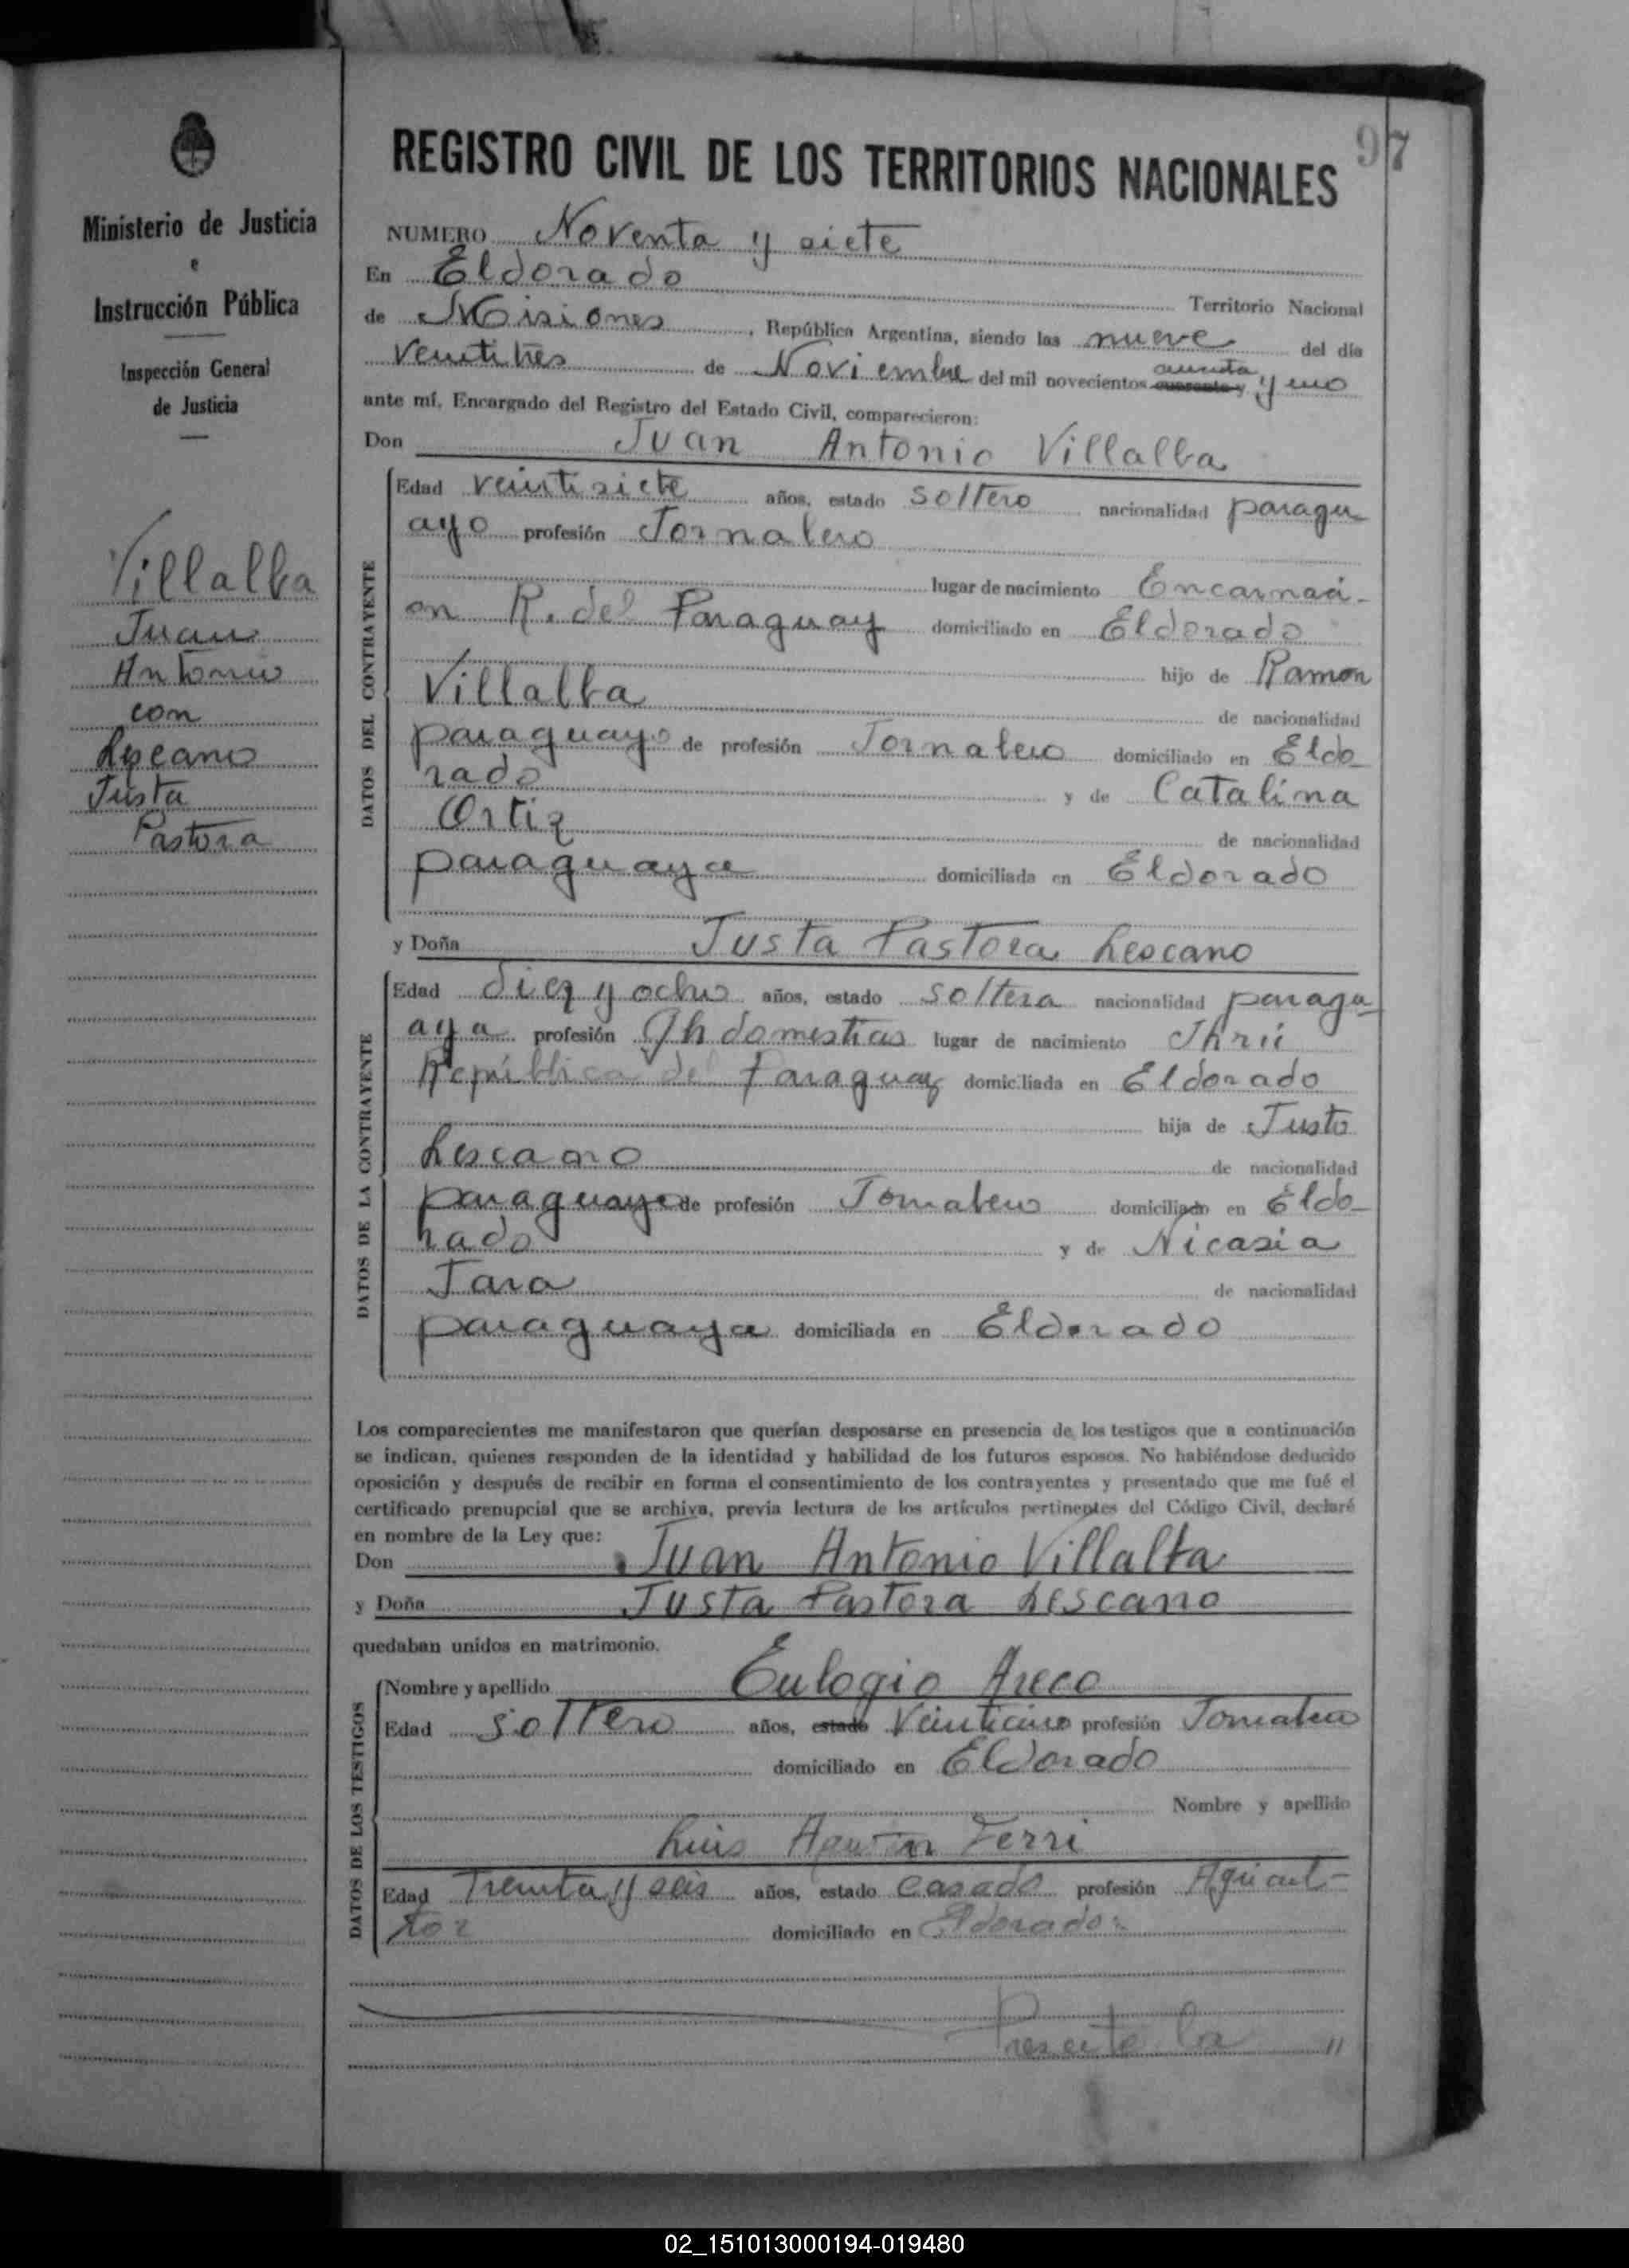 97
Ministerio de Justicia
e
Instrucción Pública
Inspección General
de Justicia
Villalba
Juan
Antonio
con
Lescano
Justa
Pastora
REGISTRO CIVIL DE LOS TERRITORIOS NACIONALES
NUMERO Noventa y siete
En Eldorado Territorio Nacional
de Misiones, República Argentina, siendo las nueve del día
veintitres de Noviembre del mil novecientos cuarenta y uno
ante mí, Encargado del Registro del Estado Civil, comparecieron:
Don Juan Antonio Villalba
DATOS DEL CONTRAYENTE
Edad veintisiete años, estado soltero nacionalidad paragu
ayo profesión Jornalero
lugar de nacimiento Encarnaci-
on R. del Paraguay domiciliado en Eldorado
hijo de Ramon
Villalba de nacionalidad
paraguayo de profesión Jornalero domiciliado en Eldo-
rado y de Catalina
Ortiz de nacionalidad
paraguaya domiciliada en Eldorado
y Doña Justa Pastora Lescano
DATOS DE LA CONTRAYENTE
Edad diez y ocho años, estado soltera nacionalidad paragu-
aya profesión domesticas lugar de nacimiento
República del Paraguay domiciliada en Eldorado
hija de Justo
Lescano de nacionalidad
paraguayo de profesión Jornalero domiciliado en Eldo-
rado y de Nicasia
Jara de nacionalidad
paraguaya domiciliada en Eldorado
Los comparecientes me manifestaron que querían desposarse en presencia de los testigos que a continuación
se indican, quienes responden de la identidad y habilidad de los futuros esposos. No habiéndose deducido
oposición y después de recibir en forma el consentimiento de los contrayentes y presentado que me fué el
certificado prenupcial que se archiva, previa lectura de los artículos pertinentes del Código Civil, declaré
en nombre de la Ley que:
Don Juan Antonio Villalba
y Doña Justa Pastora Lescano
quedaban unidos en matrimonio.
DATOS DE LOS TESTIGOS
Nombre y apellido Eulogio Areco
Edad soltero años, estado profesión Jornalero
domiciliado en Eldorado
Nombre y apellido
Luis Ferri
Edad Treinta y seis años, estado casado profesión Agricul-
tor domiciliado en Eldorado
Presente la "
02_151013000194-019480